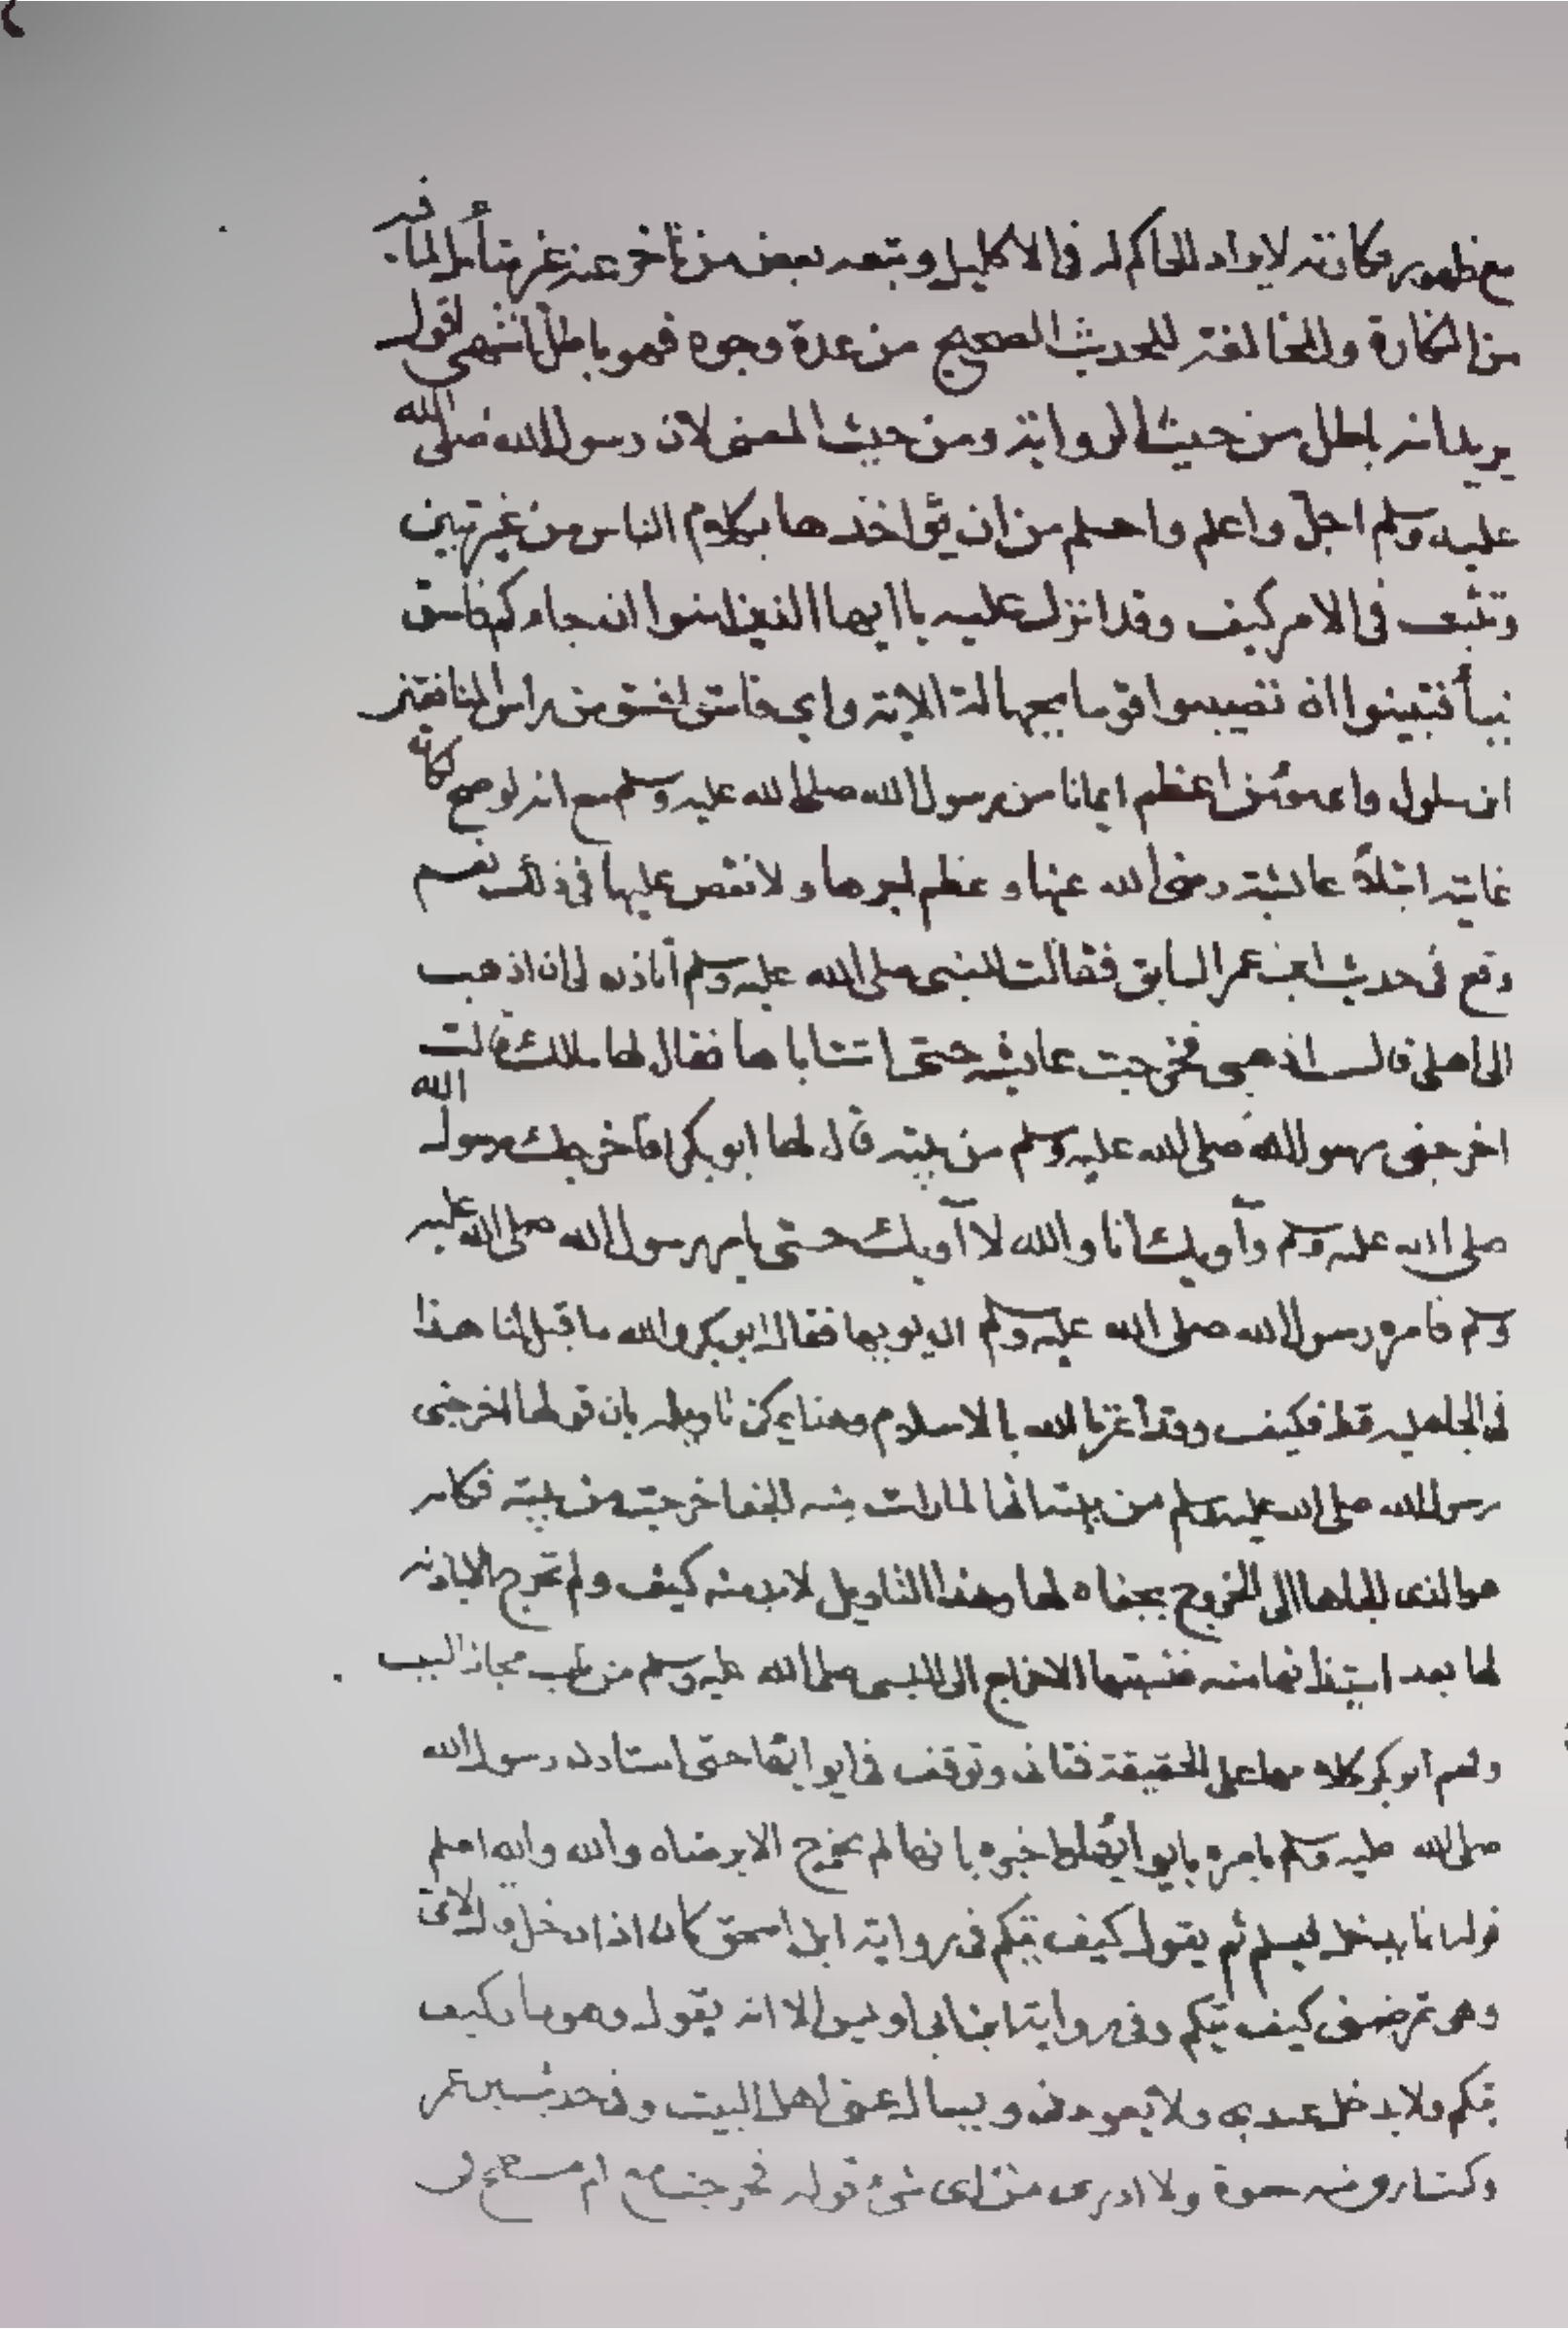 مع ظهور نكارته لايراد الحاكم له فى الاكليل وتبعه بعض من تأخر عنه غير متأمل لما فيه
من النكارة والمخالفة للحديث الصحيح من عدة وجوه فهو باطل انتهى لقوله
يريد انه باطل من حيث الرواية ومن حيث المعنى لان رسول الله صلى الله
عليه وسلم اجل واعلم واحلم من ان يؤاخذها بكلام الناس من غير تبين
وتثبت فى الامر كيف وقد انزل عليه ياايها الذين امنوا ان جاءكم فاسق
بنبأ فتبينوا ان تصيبوا قوما بجهالة الاية واى فاسق افسق من راس المنافقين
ابن سلول واى مؤمن اعظم ايمانا من رسول الله صلى الله عليه وسلم مع انه لو صح كانه
غاية ابتلاء عائشة رضى الله عنها وعظم اجرها ولا نقص عليها فى ذلك نعم
وقع فى حديث ابن عمر السابق فقالت للنبى صلى الله عليه وسلم أتاذن لى ان اذهب
الى اهلى قال اذهبى فخرجت عائشة حتى اتت اباها فقال لها مالك قالت
اخرجنى رسول الله صلى الله عليه وسلم من بيته قال لها ابو بكر افاخرجك رسول الله
صلى الله عليه وسلم وآويك أنا والله لا آويك حتى يامر رسول الله صلى الله عليه
وسلم فامره رسول الله صلى الله عليه وسلم ان يؤويها فقال ابو بكر والله ما قيل لنا هذا
فى الجاهلية قط فكيف وقد أعزنا الله بالاسلام وهنا يمكن تاويله بان قولها اخرجنى
رسول الله صلى الله عليه وسلم من بيته انها لما رات منه الجفا خرجت من بيته فكانه
هو الذى الجاها الى الخروج بجفاه لها وهذا التاويل لا بد منه كيف ولم تخرج الا باذنه
لها بعد استيذانها منه فنسبتها الاخراج الى النبى صلى الله عليه وسلم من باب مجاز السبب
وفهم ابو بكر كلامها على الحقيقة فتانى وتوقف فى ايوائها حتى استاذن رسول الله
صلى الله عليه وسلم فامره بايوائها واخبره بانها لم تخرج الا برضاه والله والله اعلم
قوله انما يدخل فيسلم ثم يقول كيف تيكم فى رواية ابن اسحق كان اذا دخل قال لامى
وهى تمرضنى كيف تيكم وفى رواية ابن ابى اويس الا انه يقول وهو مار كيف
تيكم ولا يدخل عندى ولا يعودنى ويسال عنى اهل البيت وفى حديث ابن عمر
وكنت ارى منه جفوة ولا ادرى من اى شئ قوله فخرجت مع ام مسطح فى